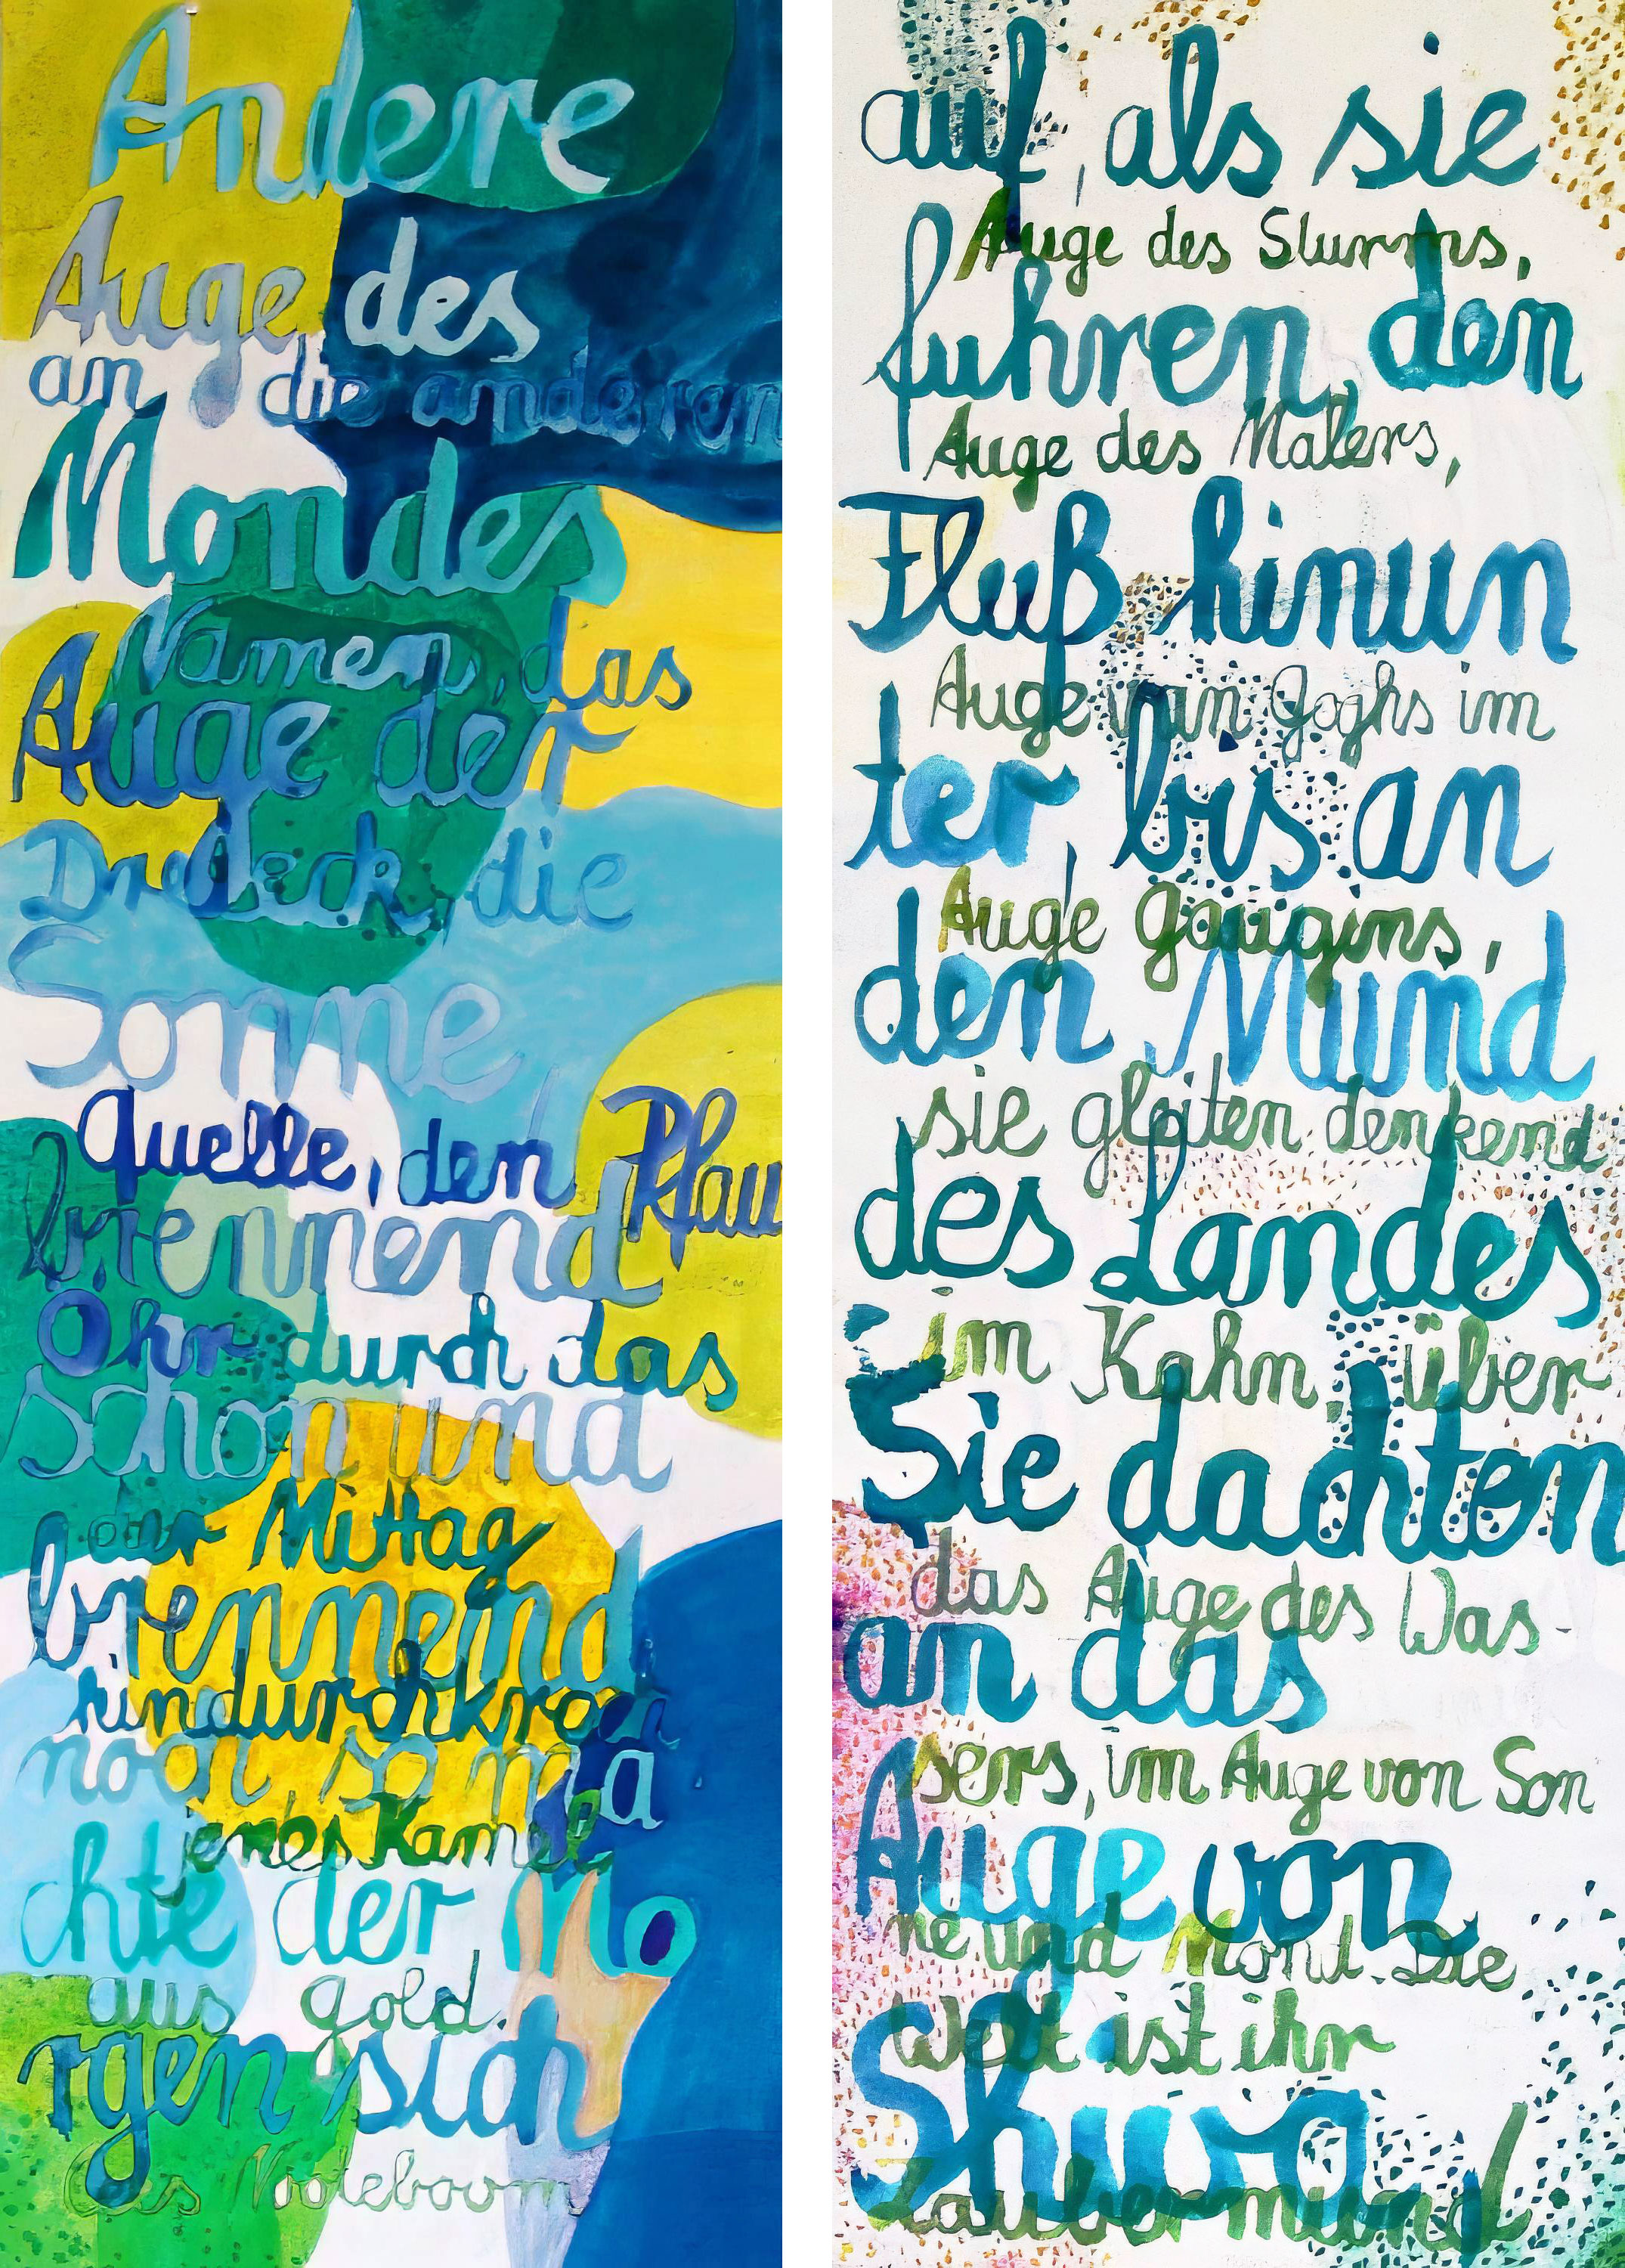 Andere
Auge des
an die anderen
Mondes
Namen, das
Auge der
Dreieck, die
Sonne,
Quelle, den Pfau
brennend
Ohr durch das
schon und
der Mittag
brennend
hindurchkroch
noch, so ma
jenes Kamel
chte der Mo
aus Gold.
rgen sich
Cees Nooteboom
auf, als sie
Auge des Sturms,
fuhren, den
Auge des Malers,
Fluß hinun
Auge van Goghs im
ter, bis an
Auge Gauguins,
den Mund
sie gleiten denkend
des Landes
im Kahn, über
Sie dachten
das Auge des Was-
an das
sers, im Auge von Son
Auge von
ne und Mond. Die
Welt ist ihr
Shiva
Zaubermund